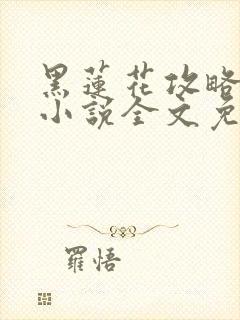 黑蓮花攻略
小說全文免
羅悟